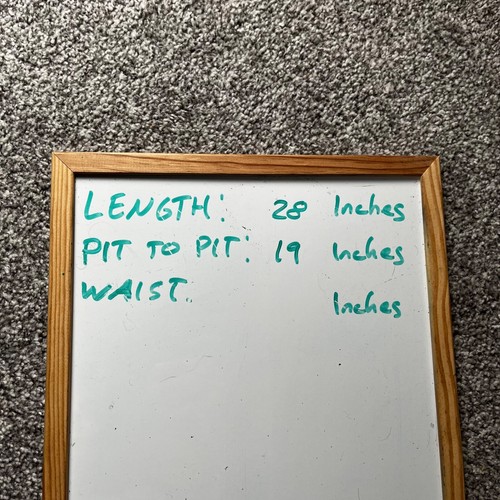 LENGTH: 28 Inches
PIT TO PIT: 19 Inches
WAIST: Inches